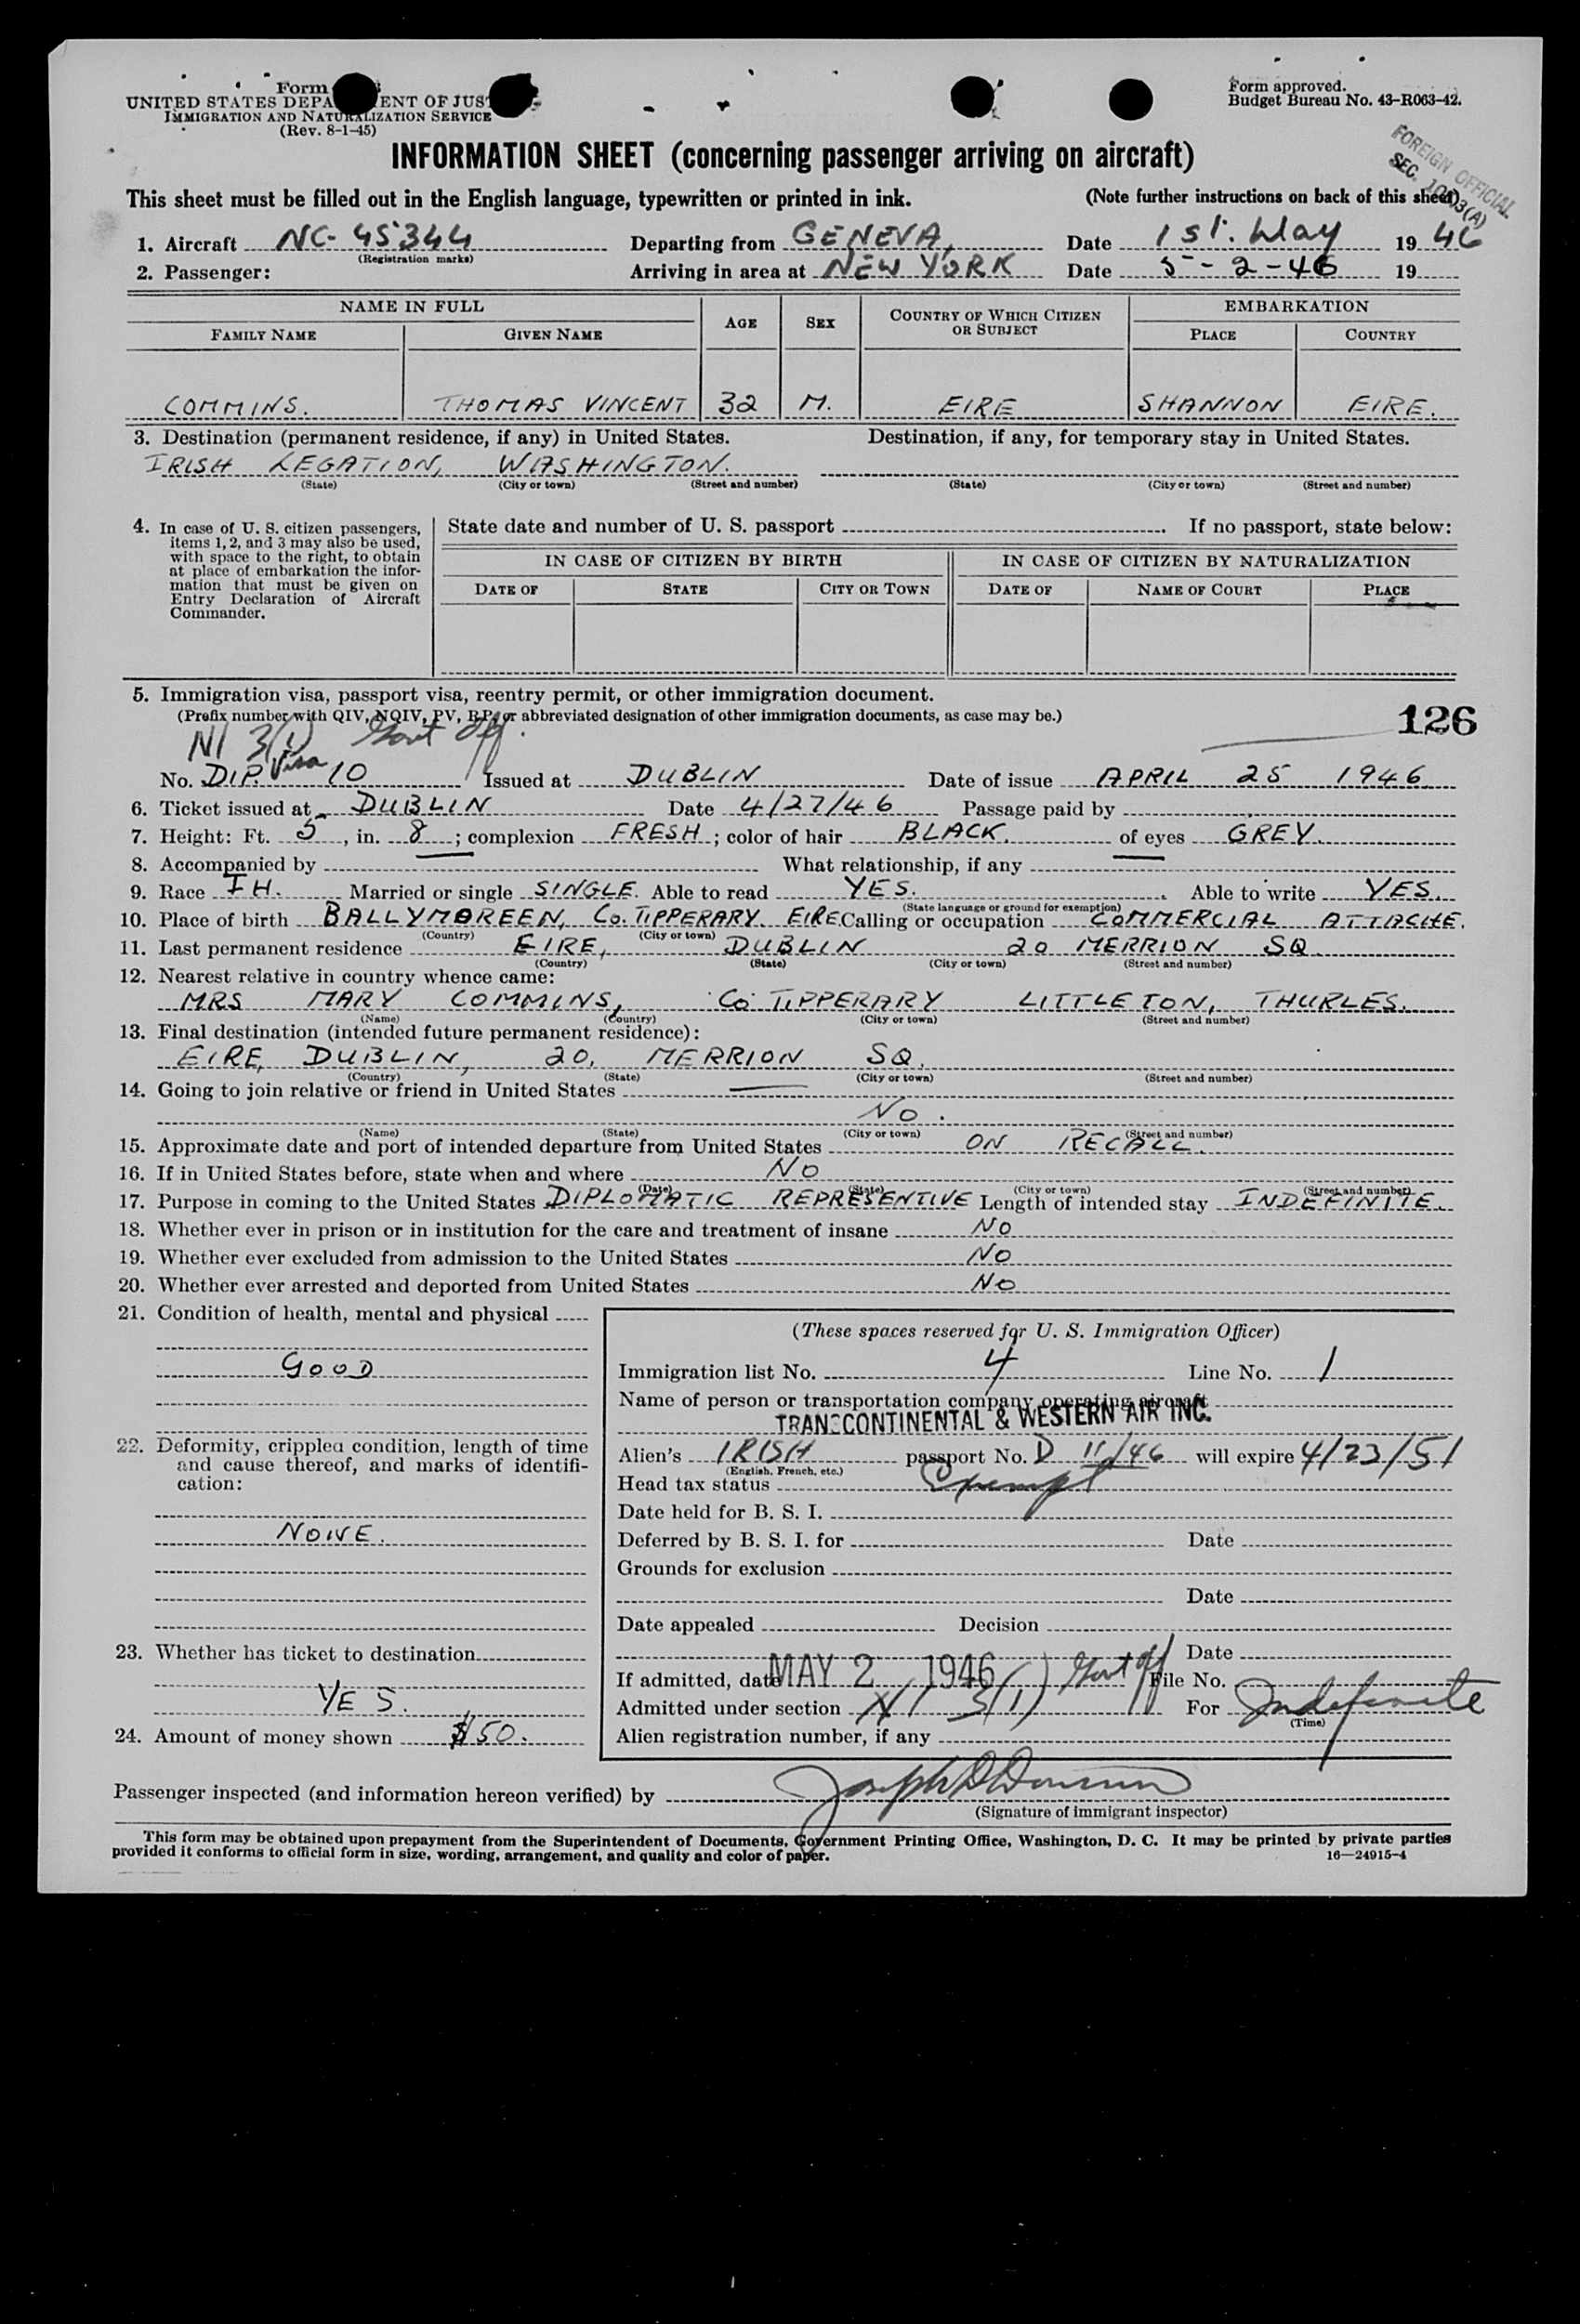 Form
UNITED STATES DEPA ENT OF JUS
IMMIGRATION AND NATURALIZATION SERVICE
(Rev. 8-1-45)
Form approved.
Budget Bureau No. 43-R063-42.
INFORMATION SHEET (concerning passenger arriving on aircraft)
FOREIGN OFFICIAL
SEC.
This sheet must be filled out in the English language, typewritten or printed in ink. (Note further instructions on back of this sheet)
1. Aircraft NC-45344 Departing from GENEVA, Date 1st. May 1946
(Registration marks)
2. Passenger: Arriving in area at NEW YORK Date 5-2-46 19
NAME IN FULL AGE SEX COUNTRY OF WHICH CITIZEN OR SUBJECT EMBARKATION
FAMILY NAME GIVEN NAME PLACE COUNTRY
COMMINS. THOMAS VINCENT 32 M. EIRE SHANNON EIRE.
3. Destination (permanent residence, if any) in United States. Destination, if any, for temporary stay in United States.
IRISH LEGATION, WASHINGTON.
(State) (City or town) (Street and number) (State) (City or town) (Street and number)
4. In case of U. S. citizen passengers,
items 1, 2, and 3 may also be used,
with space to the right, to obtain
at place of embarkation the infor-
mation that must be given on
Entry Declaration of Aircraft
Commander.
State date and number of U. S. passport . If no passport, state below:
IN CASE OF CITIZEN BY BIRTH IN CASE OF CITIZEN BY NATURALIZATION
DATE OF STATE CITY OR TOWN DATE OF NAME OF COURT PLACE
5. Immigration visa, passport visa, reentry permit, or other immigration document.
(Prefix number with QIV, NQIV, PV, RP, or abbreviated designation of other immigration documents, as case may be.)
126
NI 3(1) Govt Off.
No. DIP. Visa 10 Issued at DUBLIN Date of issue APRIL 25 1946
6. Ticket issued at DUBLIN Date 4/27/46 Passage paid by
7. Height: Ft. 5, in. 8; complexion FRESH; color of hair BLACK. of eyes GREY.
8. Accompanied by What relationship, if any
9. Race IH. Married or single SINGLE. Able to read YES. Able to write YES.
(State language or ground for exemption)
10. Place of birth BALLYMOREEN, Co. TIPPERARY. EIRE Calling or occupation COMMERCIAL ATTACHE.
(Country) (City or town)
11. Last permanent residence EIRE, DUBLIN 20 MERRION SQ.
(Country) (State) (City or town) (Street and number)
12. Nearest relative in country whence came:
MRS MARY COMMINS, Co TIPPERARY LITTLETON, THURLES.
(Name) (Country) (City or town) (Street and number)
13. Final destination (intended future permanent residence):
EIRE, DUBLIN, 20, MERRION SQ.
(Country) (State) (City or town) (Street and number)
14. Going to join relative or friend in United States
No.
(Name) (State) (City or town) (Street and number)
15. Approximate date and port of intended departure from United States ON RECALL.
16. If in United States before, state when and where NO
(Date) (State) (City or town) (Street and number)
17. Purpose in coming to the United States DIPLOMATIC REPRESENTIVE Length of intended stay INDEFINITE.
18. Whether ever in prison or in institution for the care and treatment of insane NO
19. Whether ever excluded from admission to the United States NO
20. Whether ever arrested and deported from United States NO
21. Condition of health, mental and physical
GOOD
22. Deformity, crippled condition, length of time
and cause thereof, and marks of identifi-
cation:
NONE.
23. Whether has ticket to destination
YES.
24. Amount of money shown $50.
(These spaces reserved for U. S. Immigration Officer)
Immigration list No. 4 Line No. 1
Name of person or transportation company operating aircraft
TRANSCONTINENTAL & WESTERN AIR INC.
Alien's IRISH passport No. D 11/46 will expire 4/23/51
(English, French, etc.)
Head tax status Exempt
Date held for B. S. I.
Deferred by B. S. I. for Date
Grounds for exclusion
Date
Date appealed Decision
Date
If admitted, date MAY 2 1946 Govt Off File No.
Admitted under section NI 3(1) For Indefinite
(Time)
Alien registration number, if any
Passenger inspected (and information hereon verified) by
(Signature of immigrant inspector)
This form may be obtained upon prepayment from the Superintendent of Documents, Government Printing Office, Washington, D. C. It may be printed by private parties
provided it conforms to official form in size, wording, arrangement, and quality and color of paper. 16—24915-4